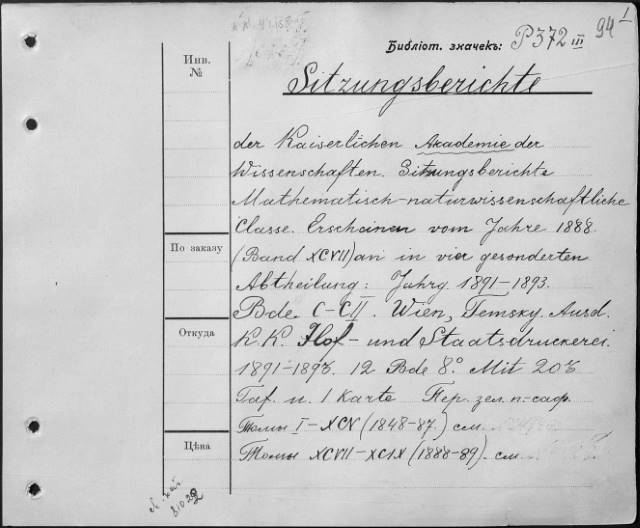 Библіот. значекъ: P372 III 94 1
Инв. №
Sitzungsberichte
der Kaiserlichen Akademie der
Wissenschaften. Sitzungsberichte
Mathematisch-naturwissenschaftliche
Classe. Erscheinen vom Jahre 1888.
По заказу
(Band XCVII) an in vier gesonderten
Abtheilung: Jahrg. 1891-1893.
Bde. C-CII. Wien, Temsky. Ausd.
Откуда
K. K. Hof- und Staatsdruckerei.
1891-1893. 12 Bde 8° Mit 203
Taf. u. 1 Karte Пер. зел. п.-саф.
Томы I-XCV (1848-87.) см.
Цѣна
Томы XCVII-XCIX (1888-89). см. №